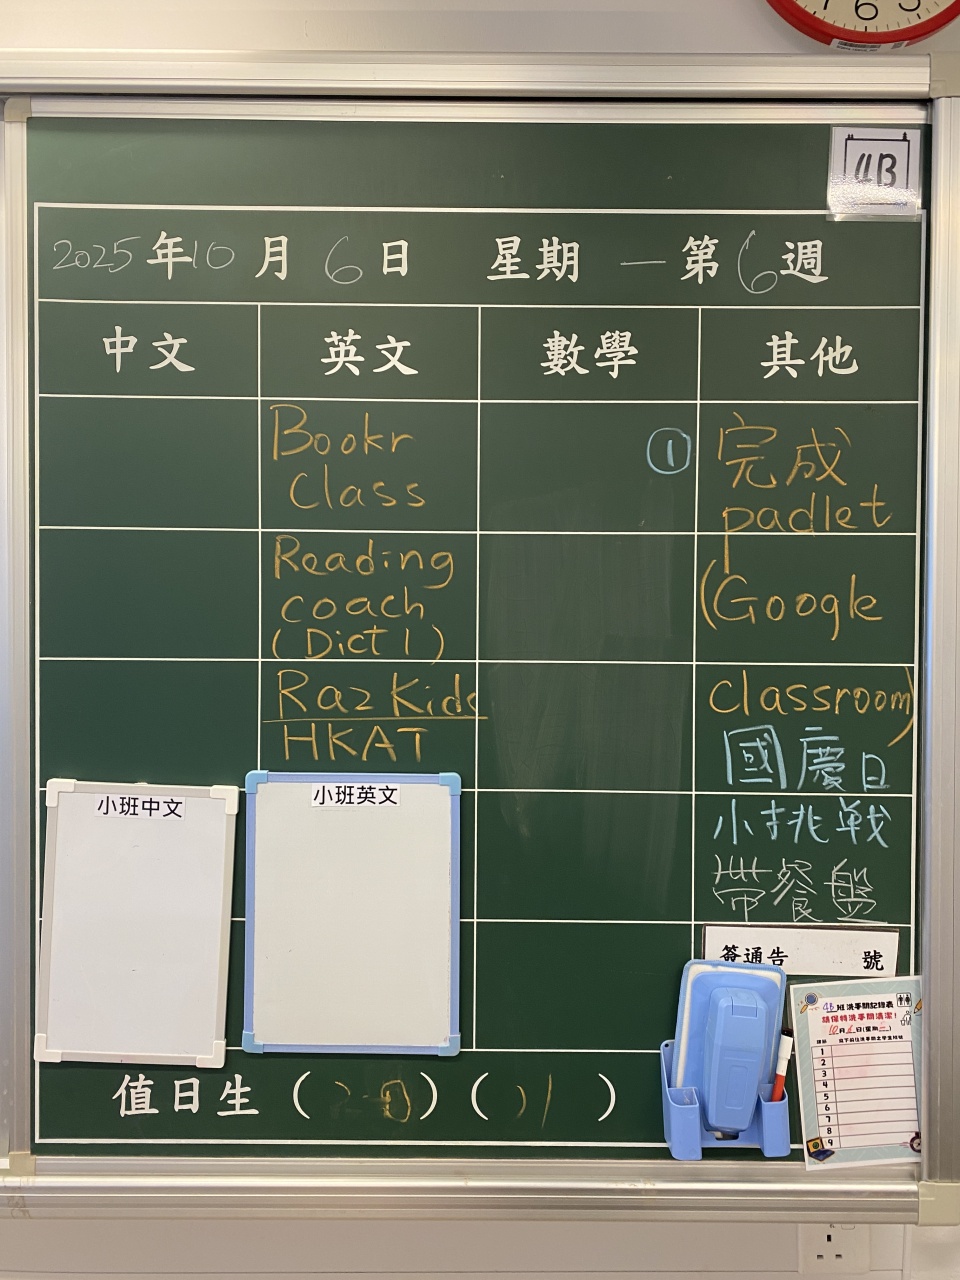 7 6 5
4B
2025年10月6日 星期一第6週
中文 英文 數學 其他
Bookr
Class
Reading
coach
(Dict 1)
Raz Kids
HKAT
①
完成
padlet
(Google
Classroom)
國慶日
小挑戰
帶餐盤
小班中文
小班英文
簽通告 號
4B班洗手間記錄表
請保持洗手間清潔!
10月6日(星期一)
1
2
3
4
5
6
7
8
9
值日生( 20 )( 21 )